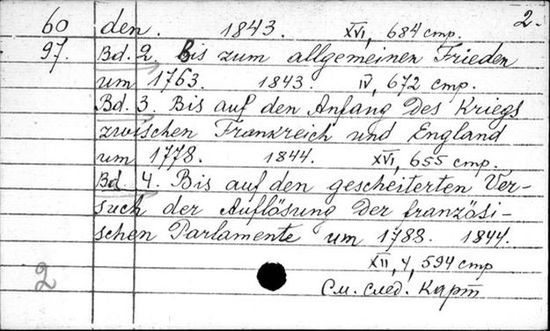 2.
60 den. 1843. XVI, 684 стр.
97. Bd. 2. Bis zum allgemeinen Frieden
um 1763. 1843. IV, 672 стр.
Bd. 3. Bis auf den Anfang des Kriegs
zwischen Frankreich und England
um 1778. 1844. XVI, 655 стр.
Bd. 4. Bis auf den gescheiterten Ver-
such der Auflösung der französi-
schen Parlamente um 1788. 1844.
2 XII, 4, 594 стр
См. след. карт